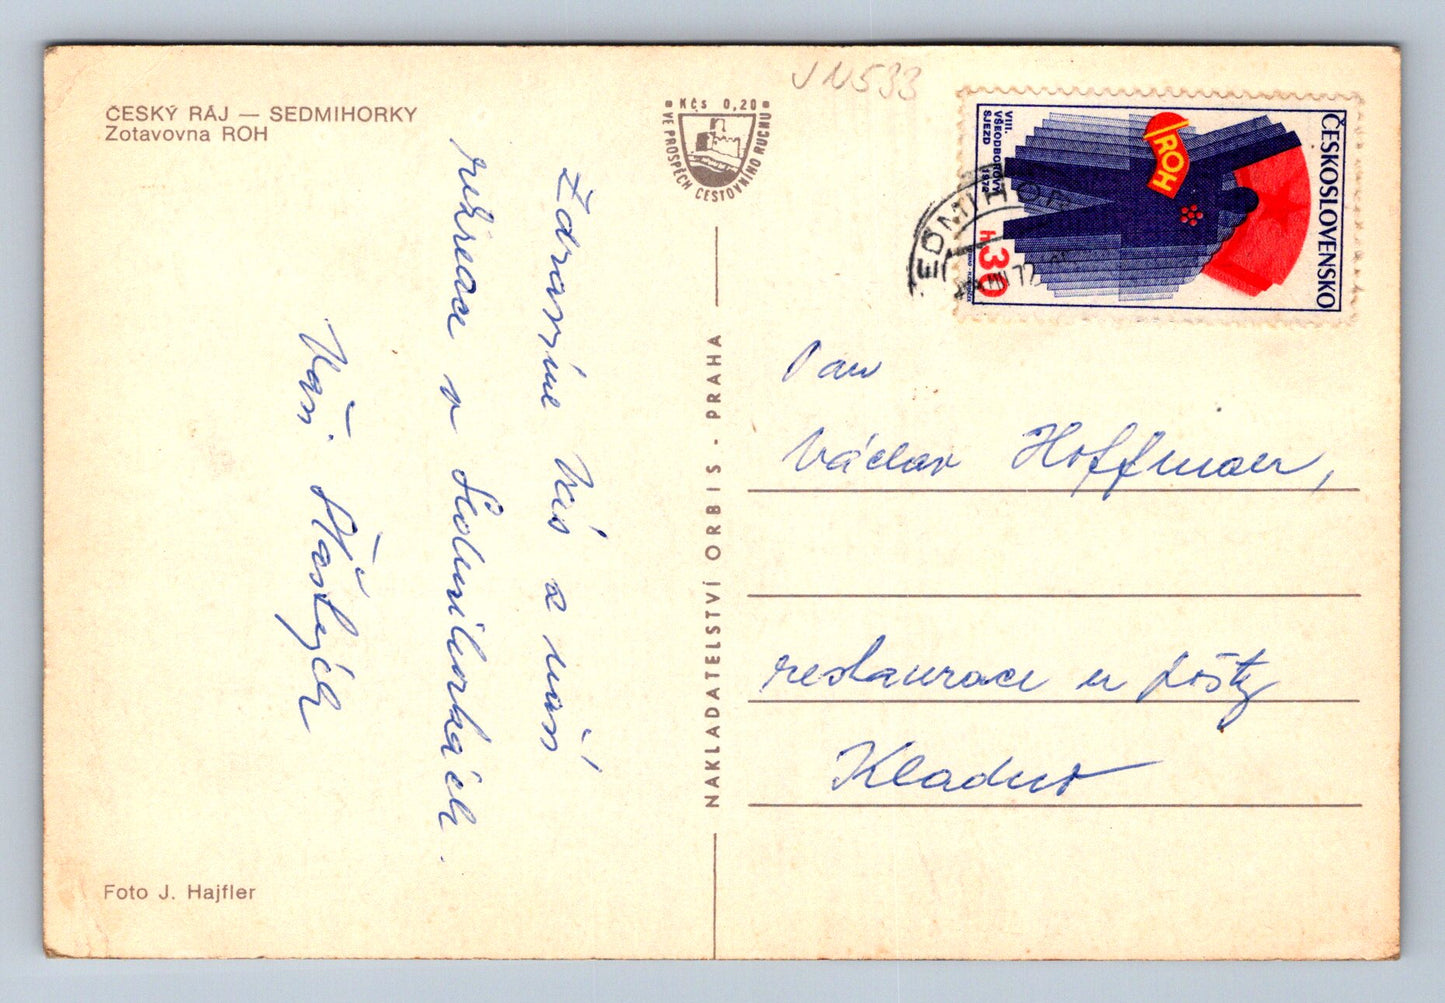 ČESKÝ RÁJ — SEDMIHORKY
Zotavovna ROH
Kčs 0,20
VE PROSPĚCH CESTOVNÍHO RUCHU
JN533
ČESKOSLOVENSKO
VIII.
VŠEODBOROVÝ
SJEZD
1972
ROH
30
h
EDMIHOR
Zdravíme Vás z naší
rekreace v Sedmihorkách.
Vaši Šťastých
NAKLADATELSTVÍ ORBIS - PRAHA
Pan
Václav Hoffman,
restaurace u pošty
Kladno
Foto J. Hajfler